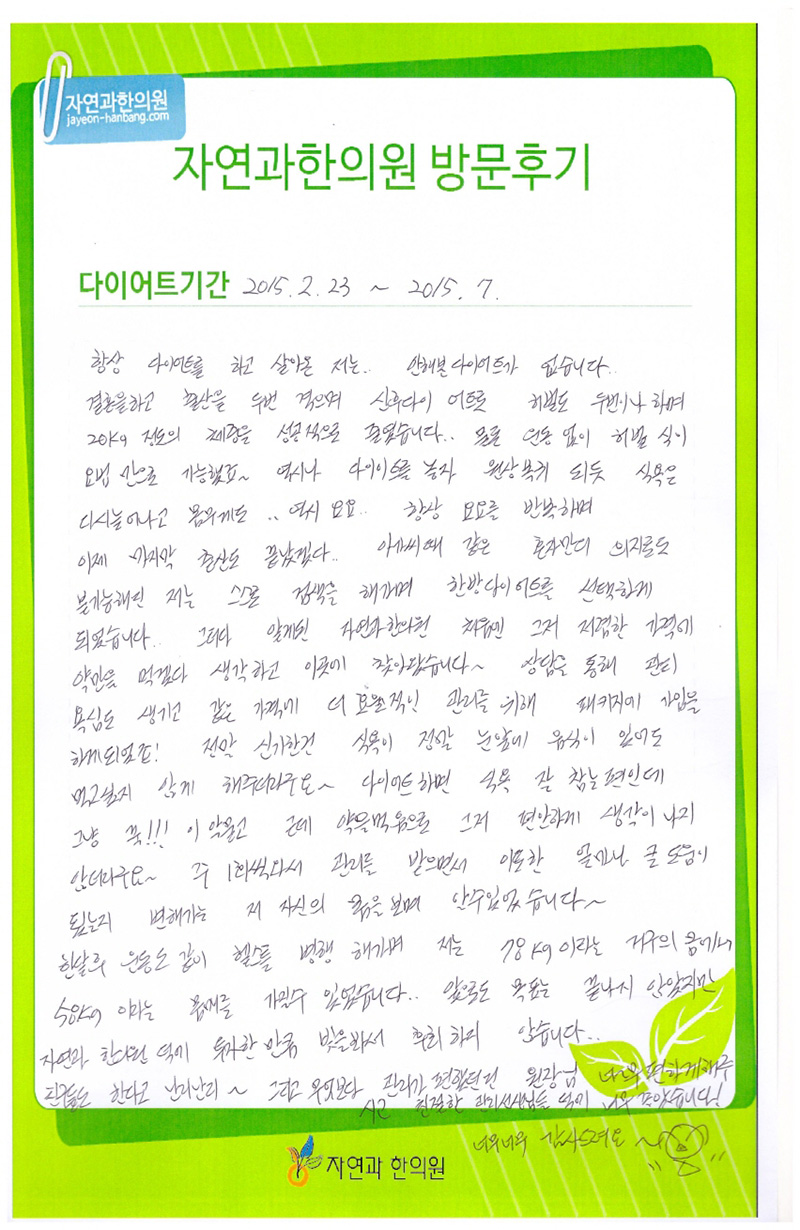 자연과한의원
jayeon-hanbang.com
자연과한의원 방문후기
다이어트기간 2015.2.23 ~ 2015.7.
항상 다이어트를 하고 살아온 저는.. 안해본다이어트가 없습니다..
결혼을하고 출산을 두번 겪으며 산후다이어트로 허벌도 두번이나 하며
20kg 정도의 체중을 성공적으로 줄였습니다.. 물론 운동 없이 허벌 식이
요법 만으로 가능했죠~ 역시나 다이어트를 놓자 원상복귀 되듯 식욕은
다시늘어나고 몸무게도.. 역시 요요.. 항상 요요를 반복하며
이제 마지막 출산도 끝났겠다.. 아가씨때 같은 혼자만의 의지로도
불가능해진 저는 스스로 검색을 해가며 한방다이어트를 선택하게
되었습니다.. 그러다 알게된 자연과한의원 처음엔 그저 저렴한 가격에
약만을 먹겠다 생각하고 이곳에 찾아왔습니다~ 상담을 통해 관리
욕심도 생기고 같은 가격에 더 효율적인 관리를 위해 패키지에 가입을
하게되었죠! 정말 신기한건 식욕이 정말 눈앞에 음식이 있어도
먹고싶지 않게 해주더라구요~ 다이어트하면 식욕 잘 참는편인데
그냥 꾹!!! 이 악물고 근데 약을먹음으로 그저 편안하게 생각이 나지
않더라구요~ 주 1회씩와서 관리를 받으면서 이또한 얼마나 큰 도움이
됐는지 변해가는 저 자신의 몸을 보며 알수있었습니다~
한달후 운동도 같이 헬스를 병행 해가며 저는 78kg이라는 거구의 몸에서
58kg 이라는 몸매를 가질수 있었습니다.. 앞으로도 목표는 끝나지 않았지만
자연과 한의원 덕에 투자한 만큼 빛을봐서 후회하지 않습니다..
친구들도 한다고 난리난리~ 그리고 무엇보다 관리가 편했던건 원장님 너무 편하게해주
시고 친절한 관리선생님들 덕에 너무 좋았습니다!
너무너무 감사드려요~
자연과 한의원